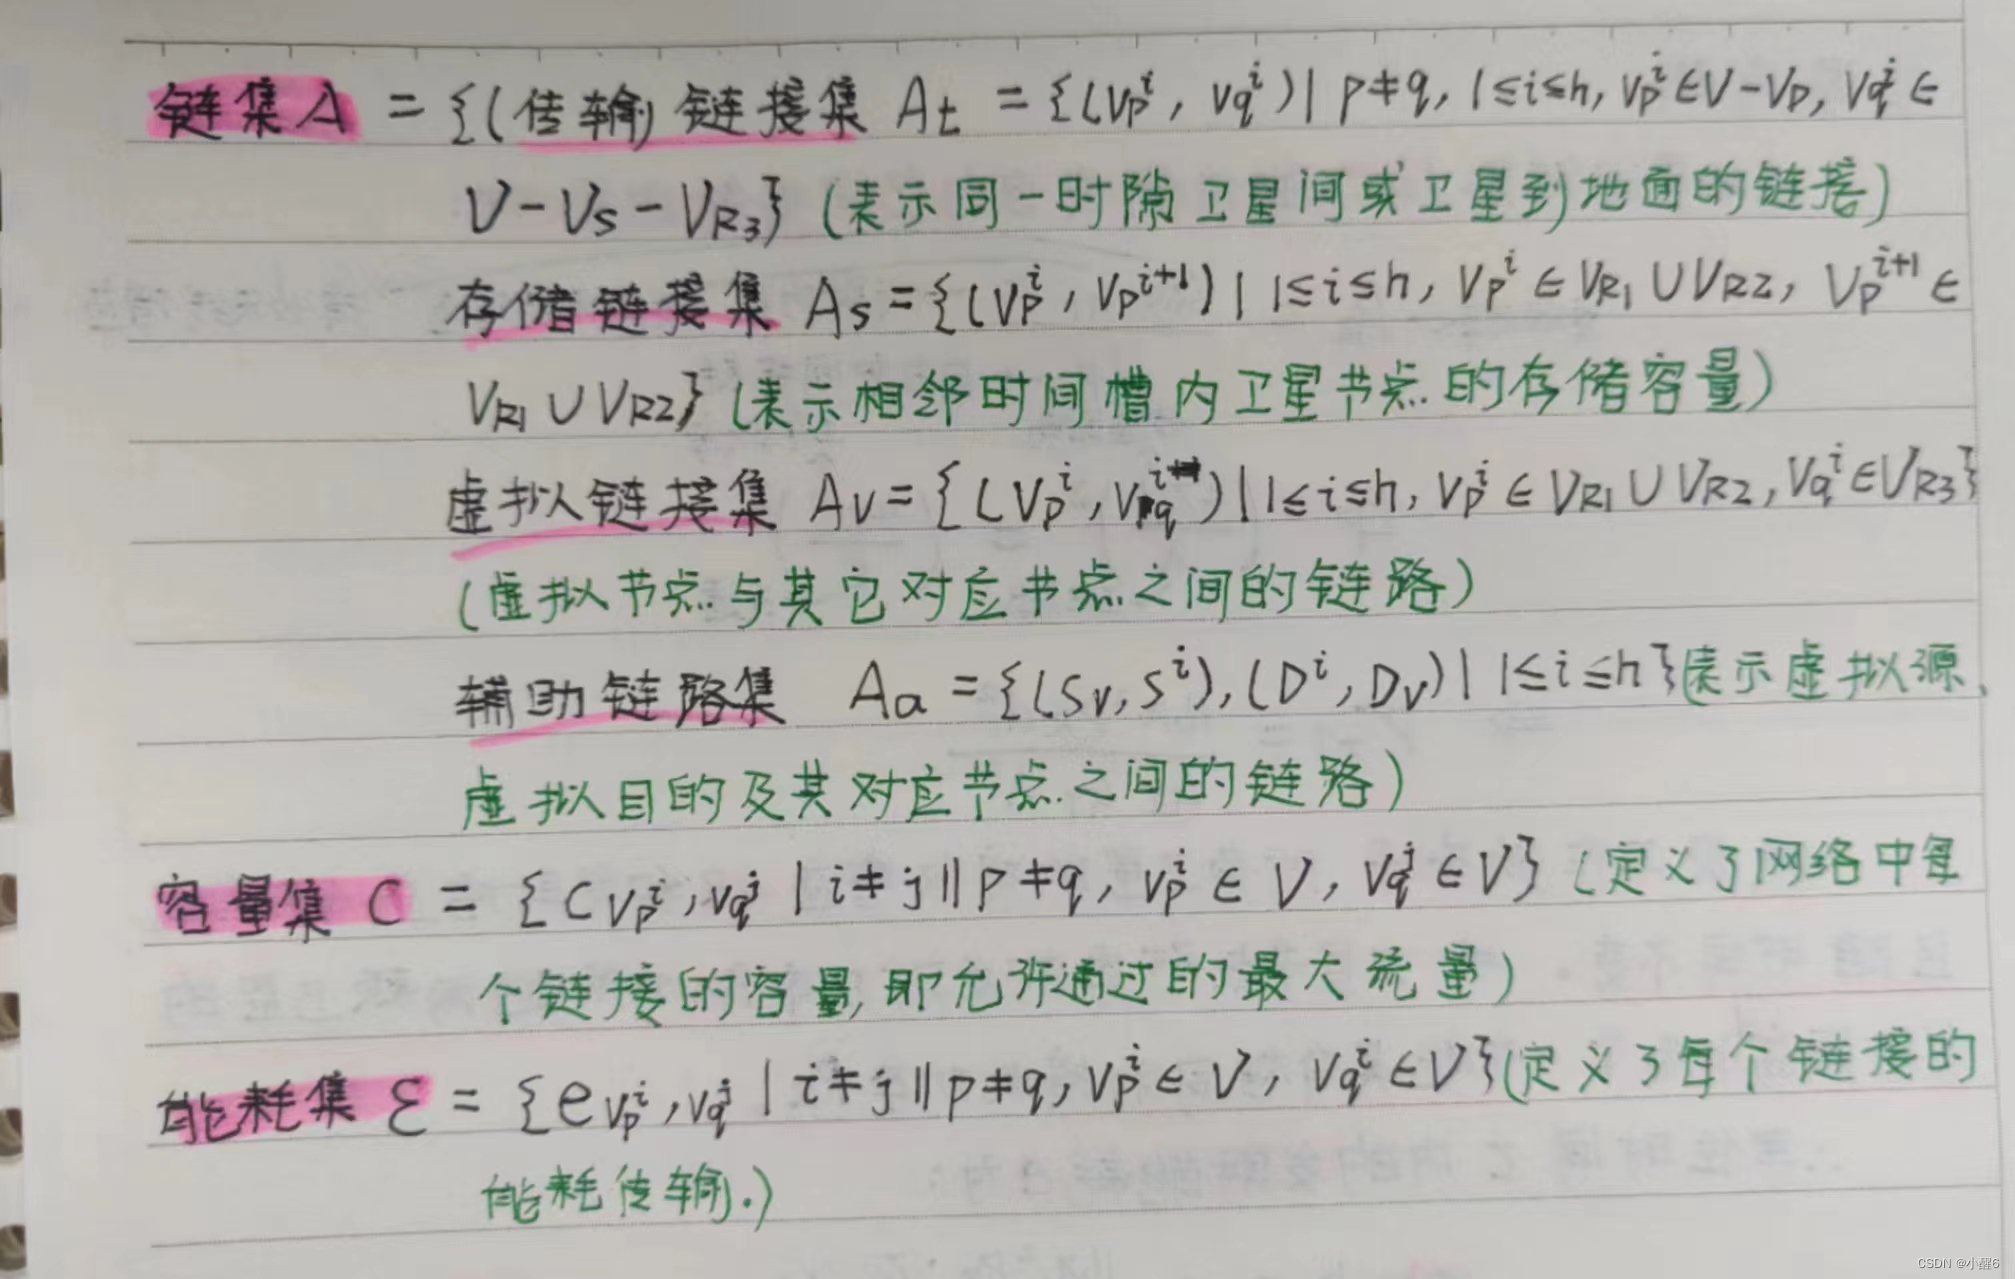 链集A = {(传输)链接集 At = {(Vp^i, Vq^i) | p≠q, 1≤i≤h, Vp^i∈V-VD, Vq^i∈
V-Vs-VR3} (表示同一时隙卫星间或卫星到地面的链接)
存储链接集 As = {(Vp^i, Vp^i+1) | 1≤i≤h, Vp^i ∈ VR1 ∪ VR2, Vp^i+1 ∈
VR1 ∪ VR2} (表示相邻时间槽内卫星节点的存储容量)
虚拟链接集 Av = {(Vp^i, Vq^i) | 1≤i≤h, Vp^i ∈ VR1 ∪ VR2, Vq^i∈VR3}
(虚拟节点与其它对应节点之间的链路)
辅助链路集 Aa = {(Sv, S^i), (D^i, Dv) | 1≤i≤h} (表示虚拟源、
虚拟目的及其对应节点之间的链路)
容量集 C = {C Vp^i, Vq^j | i≠j || p≠q, Vp^i ∈ V, Vq^j ∈ V} (定义了网络中每
个链接的容量,即允许通过的最大流量)
能耗集 ℰ = {e Vp^i, Vq^j | i≠j || p≠q, Vp^i ∈ V, Vq^i ∈ V} (定义了每个链接的
能耗传输.)
CSDN @小醒6